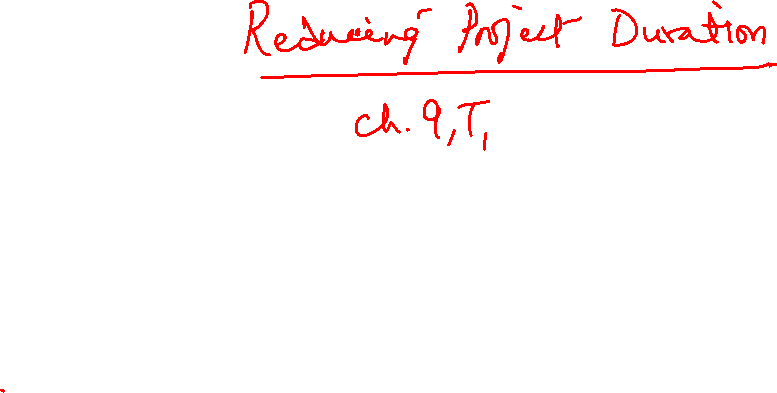 Reducing Project Duration
Ch. 9, T1